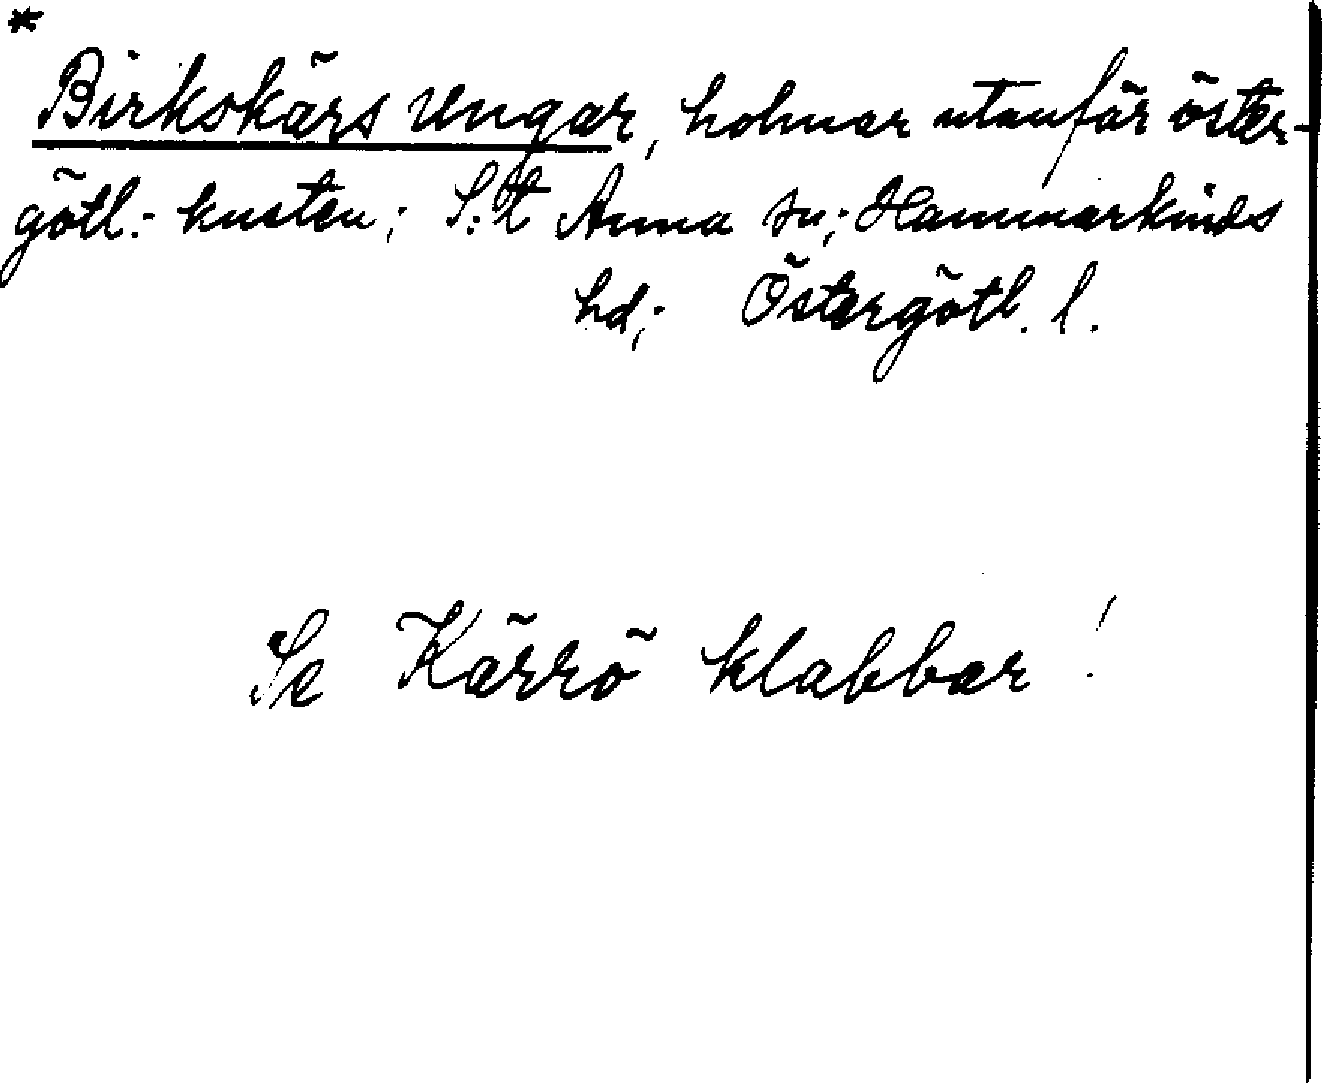 *
Birkskärs ungar, holmar utanför öster-
götl.- kusten; S:t Anna sn; Hammarkinds
hd; Östergötl. l.
Se Kärrö klabbar!